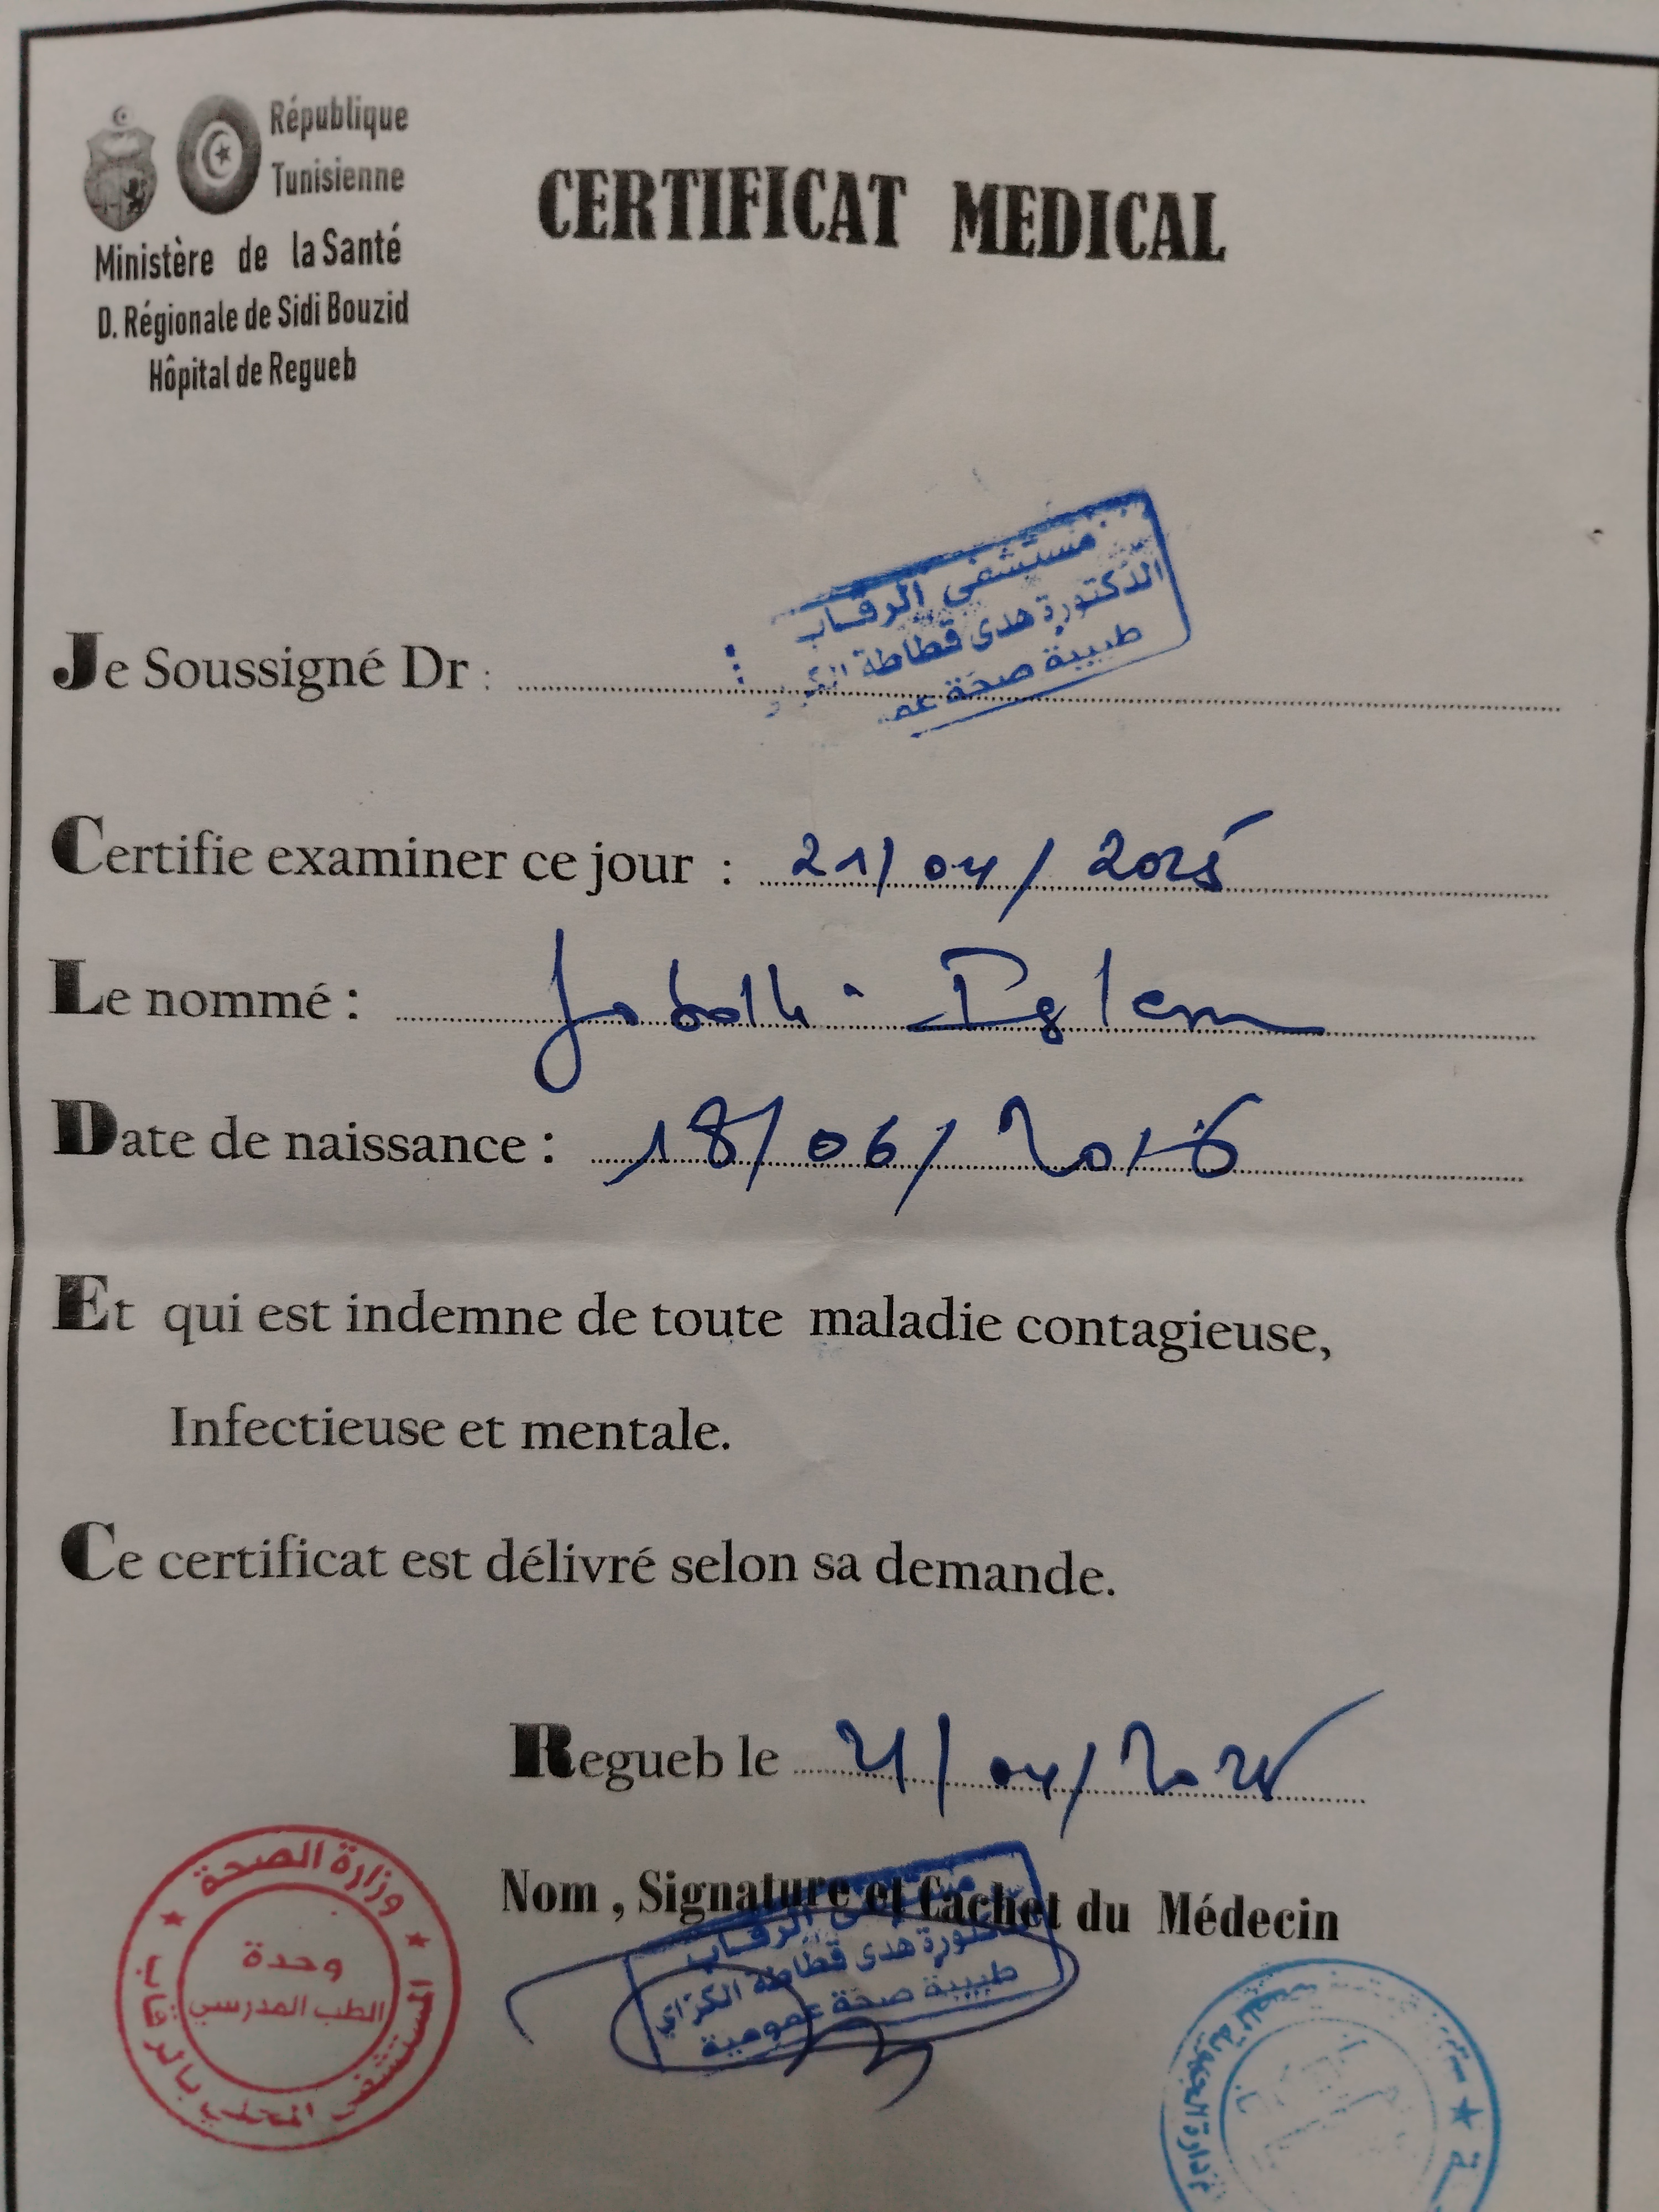 République
Tunisienne
Ministère de la Santé
D. Régionale de Sidi Bouzid
Hôpital de Regueb
CERTIFICAT MEDICAL
مستشفى الرقاب
الدكتورة هدى قطاطة
طبيبة صحة
Je Soussigné Dr :
Certifie examiner ce jour : 21/04/2025
Le nommé : Jaballi Islem
Date de naissance : 18/06/2016
Et qui est indemne de toute maladie contagieuse,
Infectieuse et mentale.
Ce certificat est délivré selon sa demande.
Regueb le 21/04/2025
Nom , Signature et Cachet du Médecin
الرقاب
هدى قطاطة الكراي
طبيبة صحة عمومية
وزارة الصحة
المستشفى المحلي بالرقاب
وحدة
الطب المدرسي
الإدارة الجهوية للصحة